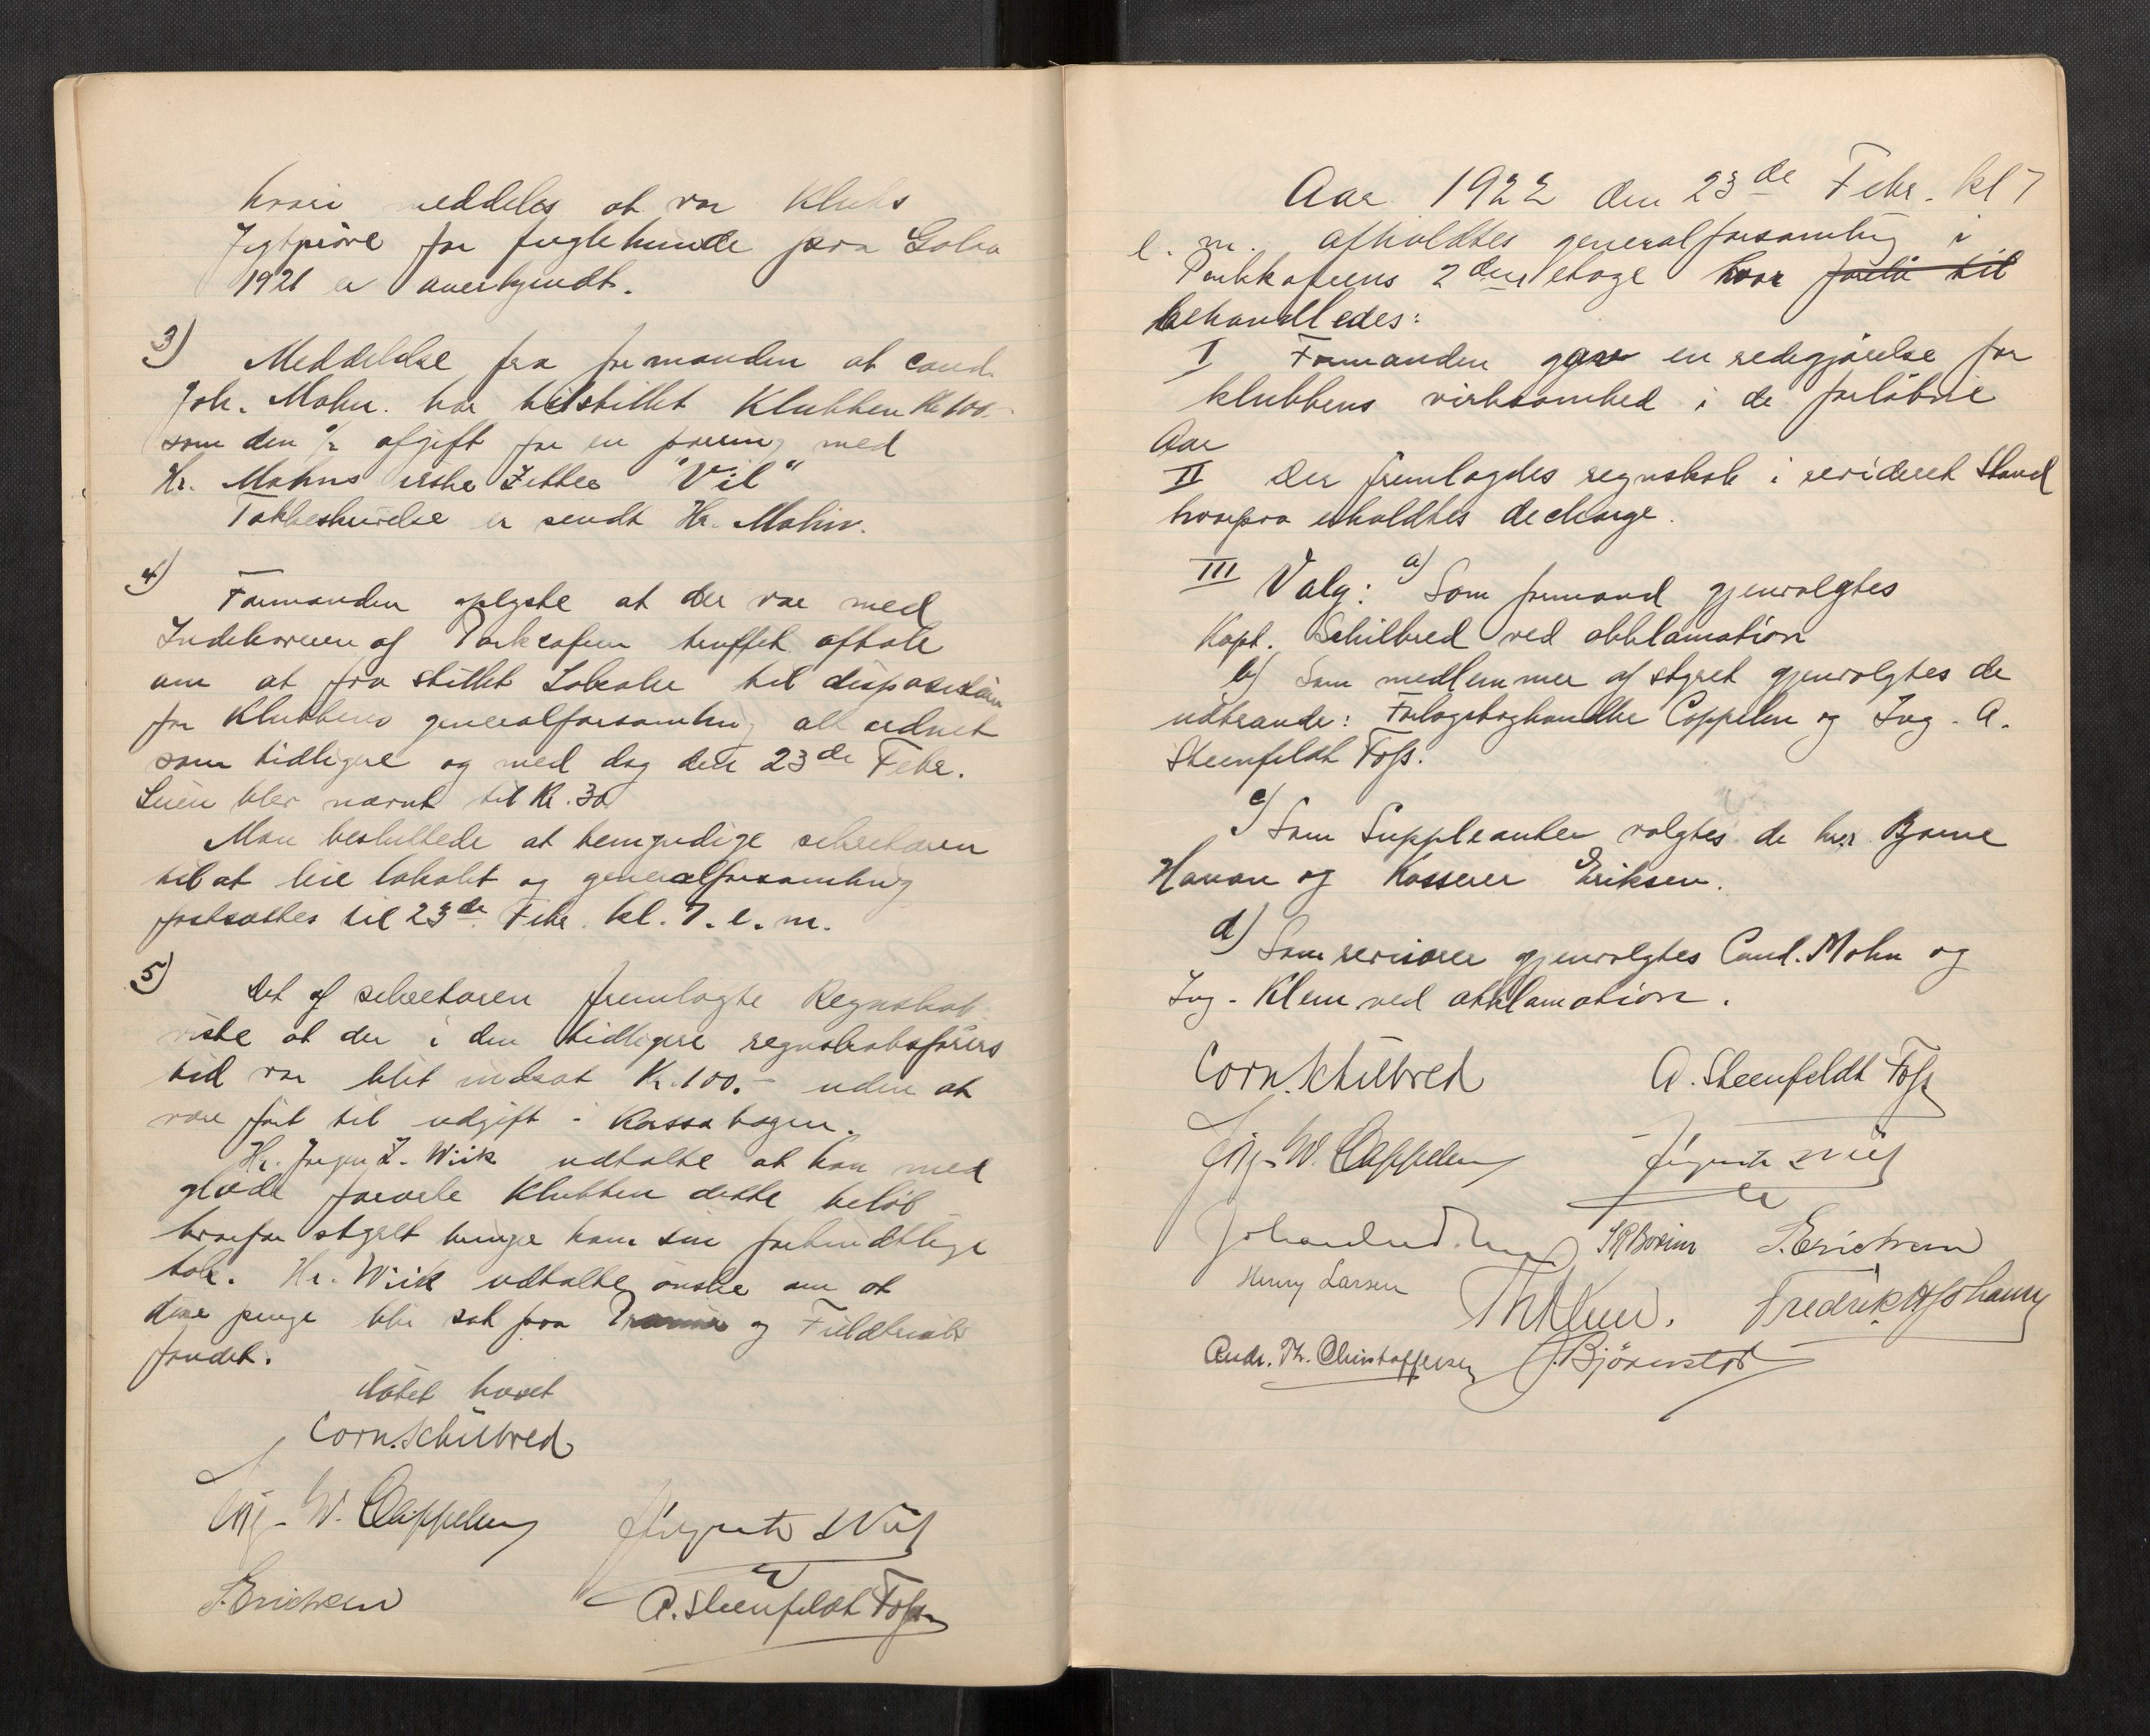 hvori meddeles at vor Klubs
Jagtprøve for fuglehunde paa Golaa
1921 er anerkjendt.
3)
Meddelelse fra formanden at cand.
Joh. Mohn. har tilstillet Klubben Kr 100.-
som den ½ afgift for en parring med
Hr. Mohns irske Setter "Vil"
Takkeskrivelse er sendt Hr. Mohn.
4)
Formanden oplyste at der var med
Indehaveren af Parkcafeen truffet aftale
om at faa stillet Lokaler til disposition
for Klubbens generalforsamling alt ordnet
som tidligere og med dag den 23de Febr.
Leien blev nævnt til Kr. 30
Man besluttede at bemyndige sekretæren
til at leie lokalet og generalforsamling
fastsattes til 23de Febr. kl. 7. e. m.
5)
Det af sekretæren fremlagte Regnskab
viste at der i den tidligere regnskabsførers
tid var blit indsat Kr. 100.- uden at
være ført til udgift i Kassabogen.
Hr. Jørgen Z. Wiik udtalte at han med
glæde forærte Klubben dette beløb
hvorfor styret bringe ham sin forbindtlige
tak. Hr. Wiik udtalte ønske om at
disse penge blir sat paa og Fieldtrials
fondet.
Møtet hævet
Corn. Schilbred
Jørg. W. Cappelen
Wiik
S. Erichsen
A. Steenfeldt Foss
Aar 1922 den 23de Febr. kl 7
e. m. afholdtes generalforsamling i
Parkkafeens 2den etage hvor forelå til
behandledes:
I Formanden gav en redegjørelse for
klubbens virksomhed i de forløbne
Aar
II Der fremlagdes regnskab i revideret Stand
hvorpaa erholdtes decharge.
III Valg: a) Som formand gjenvalgtes
Kapt. Schilbred ved akklamation
b) Som medlemmer af styret gjenvalgtes de
udtrædende: Forlagsboghandler Cappelen og Ing. A.
Steenfeldt Foss.
c) Som Suppleanter valgtes de hrr. Bjarne
og Kasserer Eriksen.
d) Som revisorer gjenvalgtes Cand. Mohn og
Ing. Klem ved akklamation.
Corn. Schilbred
A. Steenfeldt Foss
Jørg. W. Cappelen
Wiik
S. Erichsen
Henry Larsen
Th. Klem.
Fredrik
Andr. Th. Christoffersen
J. Bjørnstad